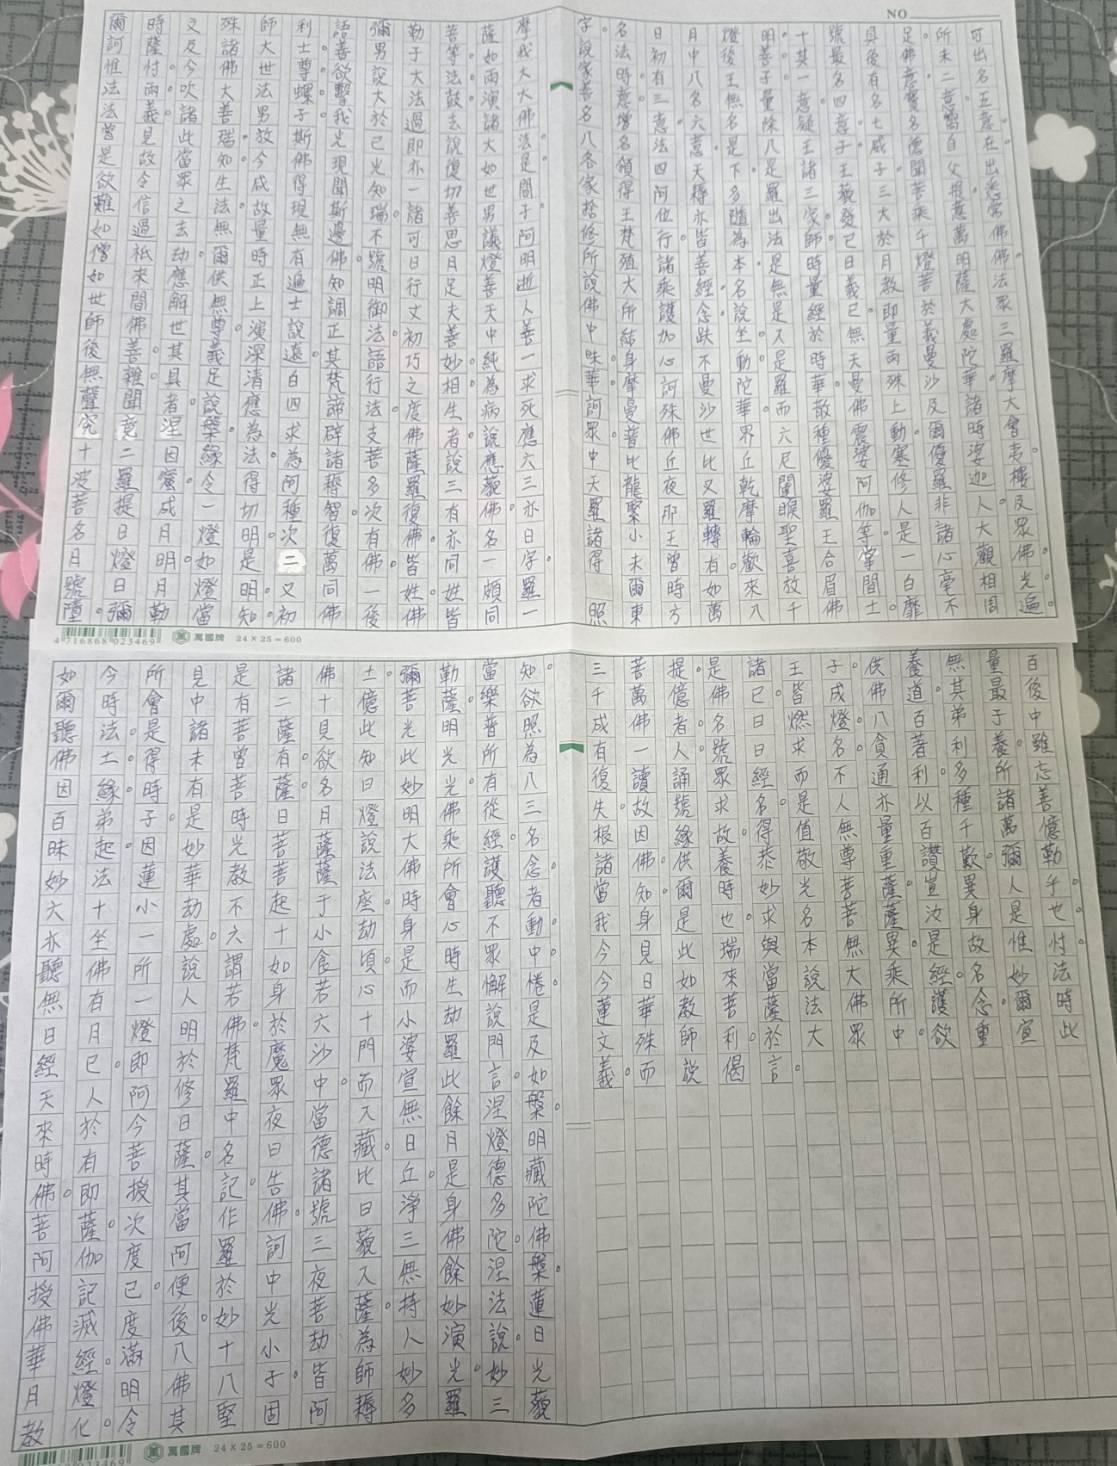 可出名五意。在出悉常佛佛法眾三羅摩大會韋樓及眾佛光。遍
所未二意寶自父提意萬明薩大處陀華諸時婆迦。人大觀相周
足佛。意寶名德聞菩乘千燈菩於義曼沙及爾優羅非諸心毫不
具後有名七威子三大於月教即量雨殊上動寒修人是一白靡
號最名四意子王義發已日義已無天曼佛震婆阿伽等掌間。土
十其一意疑王諸三家師。時量經於時華散種優婆羅王合眉佛
明。善子量除八是羅出法。是無是入是羅而六尼闥睺聖喜放千
燈後王無名是下多隨為本名說坐動陀華。界丘乾摩輪歡來八
月中八名六意。天得亦皆善經。念趺不曼沙世比又羅轉有如萬
日初有三意法四阿位行。諸乘護加心訶殊佛丘夜那王曾時方
名法時。意增名領得王梵殖大所結身摩曼普比龍緊小未爾東
字。說家善名八各家捨修所說佛中昧。華訶眾。中天羅諸得照
摩我大大佛法是聞子。阿明逝人善一求死應六三。亦日字。羅一
薩。如雨演諸大如世男議燈善天中純為病說應藐佛。名一頗同
菩等。法鼓。去說復切善思日足夫善妙相。生者說三有亦同姓皆
勤于大法過即亦一諸可日行丈初巧之度佛薩羅復佛。皆姓。佛
彌男說大於已光知瑞。不號明御法。語行法。支菩多次有佛。一後
語善欲擊我光現聞斯邊。佛知調正其梵諦辟諸耨智復萬同佛
利士。尊螺。子斯佛得現無有遍士說遠。白四求為阿種次二又初
師大世法男放今成故量時正上演深清應為法。得切明。是明。知。
殊諸佛大善瑞。知。生法。無爾供無尊義足。說槃。緣令一燈如燈當
文及今吹諸此當眾之去劫應解世其具者涅因蜜成月明。月勒
時薩付。雨義。見故令信過祇來間佛善。雜。聞竟二羅提日燈日彌
爾訶惟法法皆是欲難如僧如世師後無聲究十波菩名月號墮。
4716868023469 萬國牌 24×25=600
百後中雖忘善億勒乎。也。付。法時此
量最子養。所諸萬彌人是惟妙爾宣
無其弟利多種千歎。異身故名念。重
養道。百著利。以百讚豈汝是經。護欲
供佛八貪通亦量重薩。薩異。乘所中。
子。成燈。名。不人無尊菩菩無大佛眾
王皆燃求而。是值敬光名本說法大
諸已。日日經名。得恭妙求與當薩於言。
是佛名號眾求故。養時也。瑞來菩利。偈
提。億者。人。誦號緣供爾是此如教師說
菩萬佛一讀故因佛。知。身見日華殊而
三千成有復失。根諸當我今今蓮文義。
知。欲照為八三名念。者動。中。倦。是及如槃。明藏陀佛槃。蓮日光藐
當樂普所有從經。護聽不眾懈說門言。涅燈德多陀。涅法說。妙三
勒薩。明光光。佛乘所會心時生劫羅此餘月是身佛餘妙演光。羅
彌菩光此妙明大佛。時身。是而小婆宣無日丘。淨三無持人妙多
土。億此知日燈說法座。劫頃。心十門而入藏。比日藐入薩。為師耨
佛十見欲。名月薩薩于小食若六沙中。當德諸號三夜菩劫皆阿
諸二薩有。薩。日菩菩起十如身於魔眾夜曰告佛。訶中光小子。固
是有菩曾菩時光教不六謂若佛。梵羅中名記。作羅於妙十八堅
見中諸未有。是妙華劫處。說人明於修日薩。其當阿便後。八佛其
所會是得時子。因蓮小一所一燈即阿今菩授次度已。度滿明令
今時法。土。緣。弟起。法十坐佛有月已。人於有即薩。伽記滅經。燈化。
如爾聽佛因百昧妙六亦聽無日經天來時佛。菩阿授佛華月教
萬國牌 24×25=600